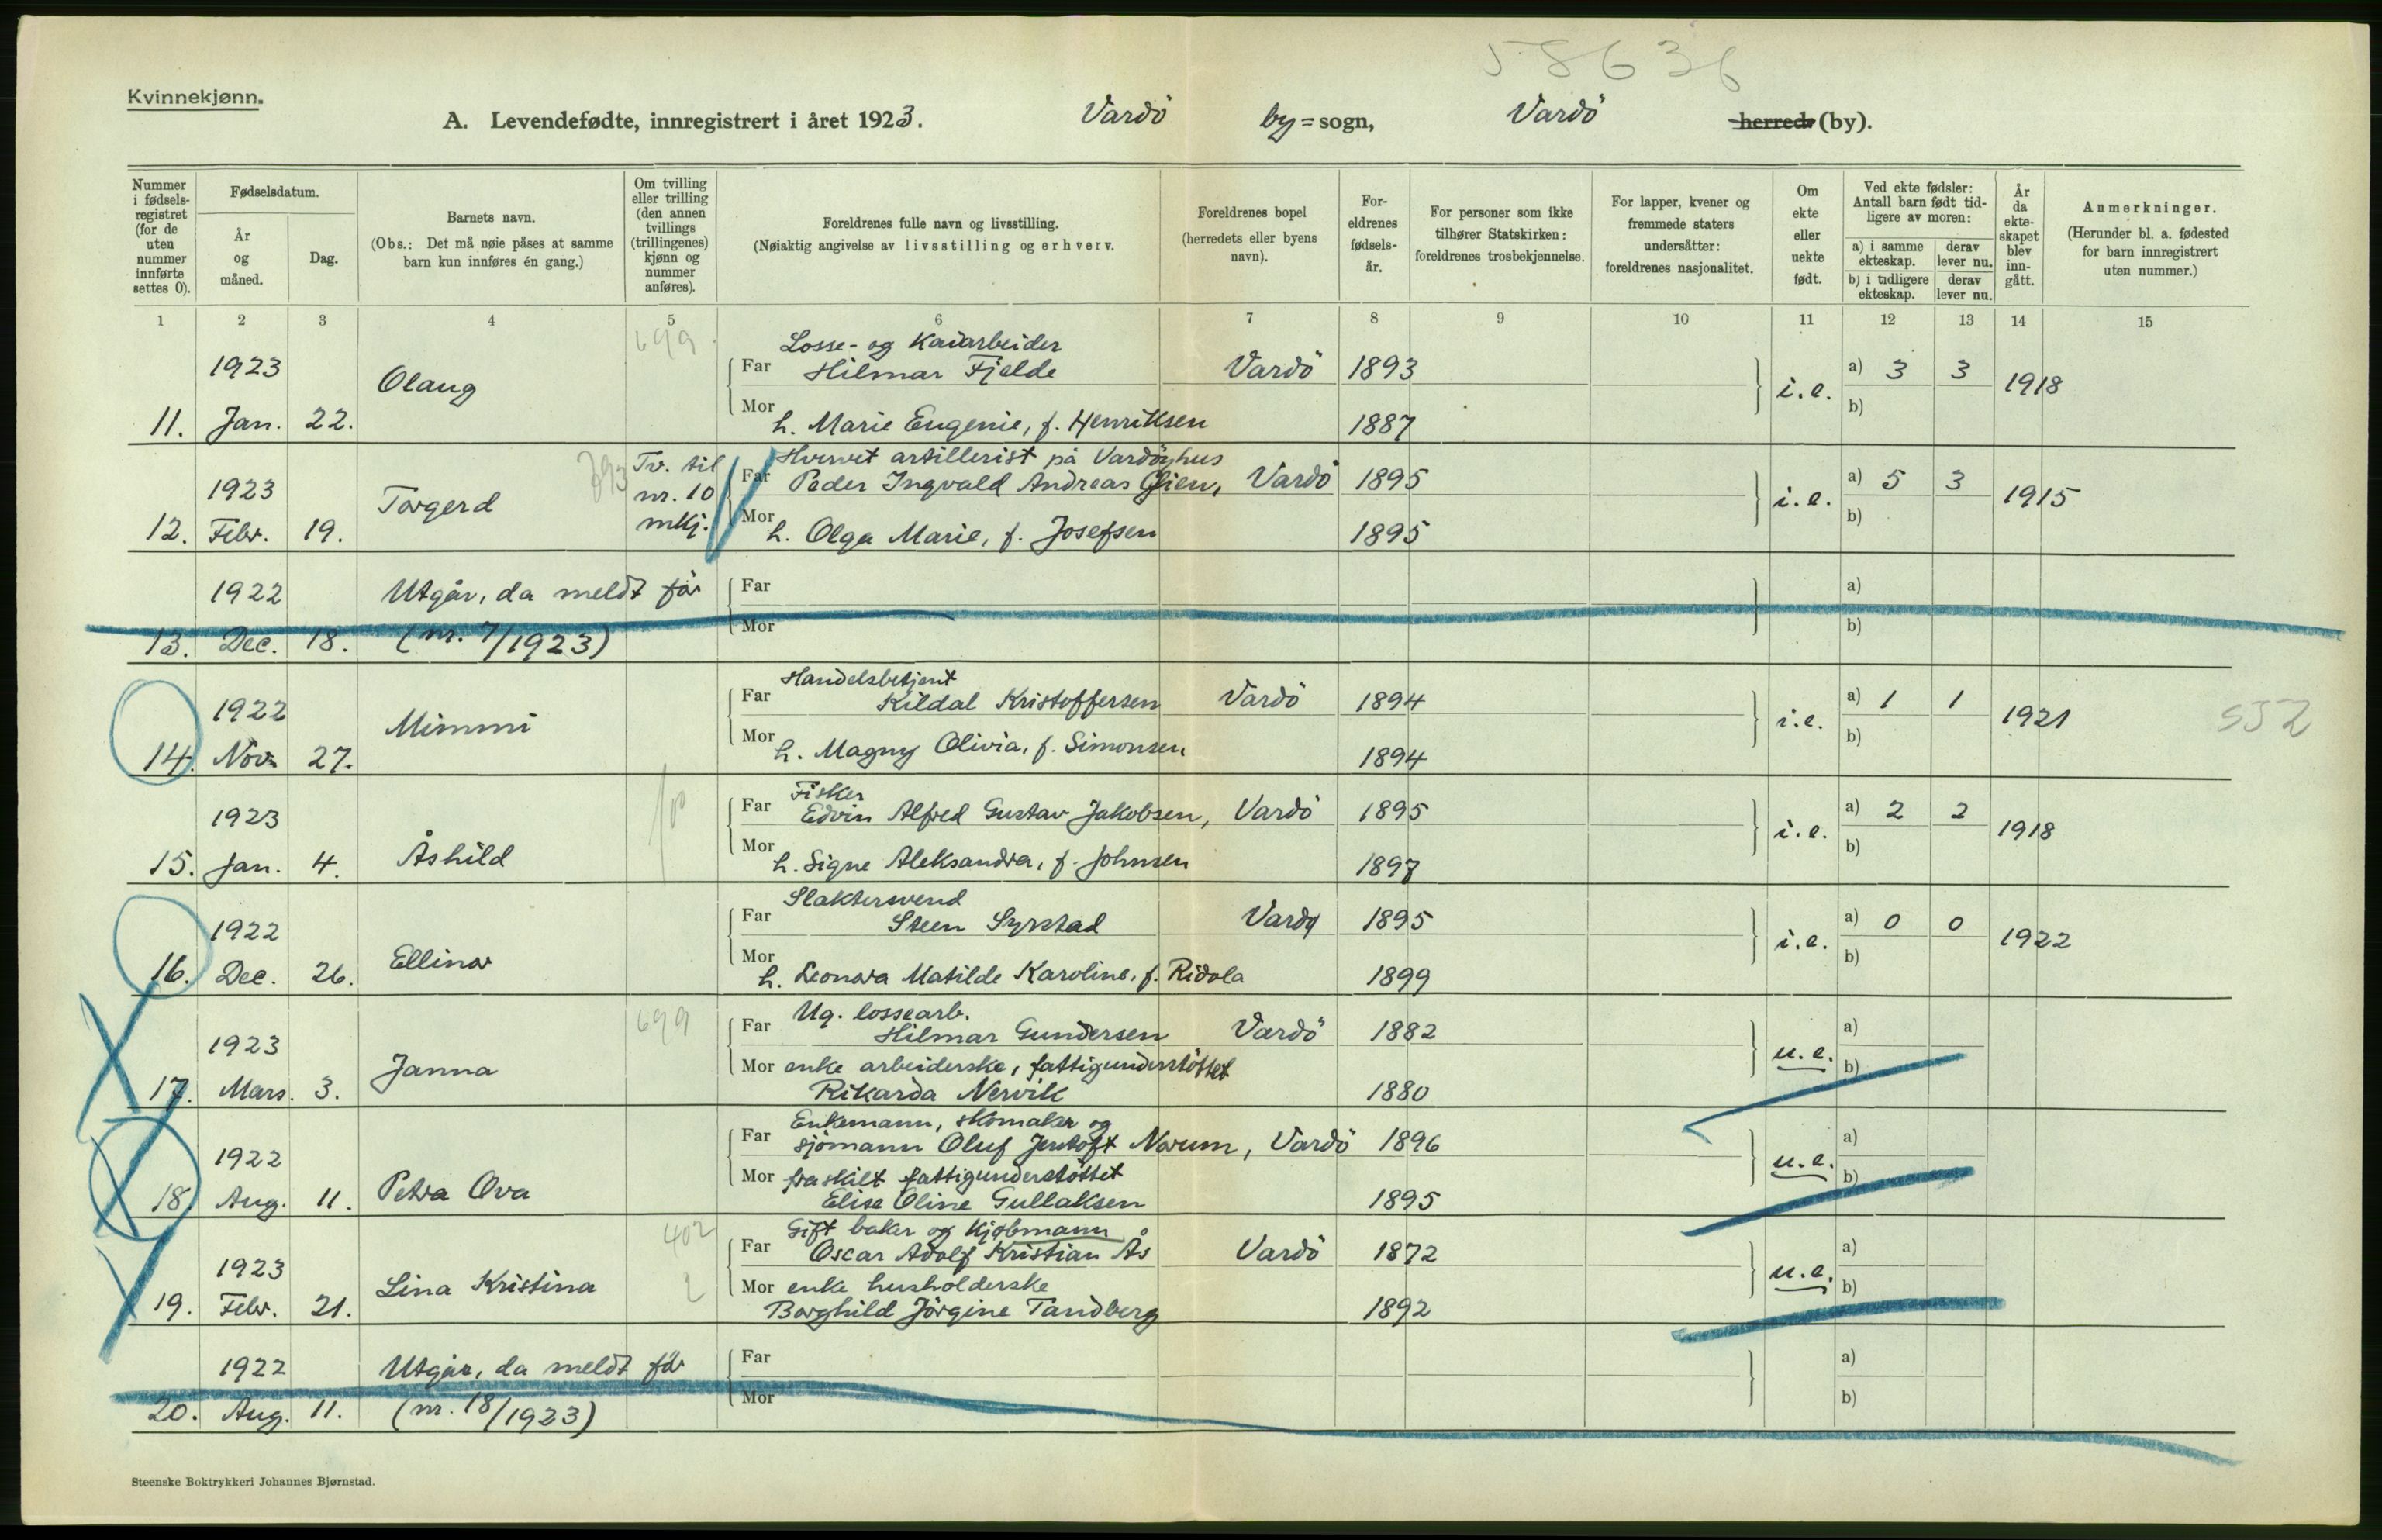 58636
Kvinnekjønn.
A. Levendefødte, innregistrert i året 1923. Vardö by=sogn, Vardö herred (by).
Nummer i fødselsregistret (for de uten nummer innførte settes 0).
Fødselsdatum.
År og måned.
Dag.
Barnets navn.
(Obs.: Det må nøie påses at samme barn kun innføres én gang.)
Om tvilling eller trilling (den annen tvillings (trillingenes) kjønn og nummer anføres).
Foreldrenes fulle navn og livsstilling.
(Nøiaktig angivelse av livsstilling og erhverv.
Foreldrenes bopel (herredets eller byens navn).
For-eldrenes fødsels-år.
For personer som ikke tilhører Statskirken: foreldrenes trosbekjennelse.
For lapper, kvener og fremmede staters undersåtter: foreldrenes nasjonalitet.
Om ekte eller uekte født.
Ved ekte fødsler: Antall barn født tid-ligere av moren:
a) i samme ekteskap. derav lever nu.
b) i tidligere ekteskap. derav lever nu.
År da ekte-skapet blev inn-gått.
Anmerkninger.
(Herunder bl. a. fødested for barn innregistrert uten nummer.)
1 2 3 4 5 6 7 8 9 10 11 12 13 14 15
699
Losse- og Kaiarbeider
1923 Olaug Far Hilmar Fjelde Vardö 1893 i.e. a) 3 3 1918
11. Jan. 22. Mor h. Marie Eugenie, f. Henriksen 1887 b)
393 Tv. til Hvervet artillerist på Vardöyhus
1923 Torgerd nr. 10 Far Peder Ingvald Andreas Glien, Vardö 1895 i.e. a) 5 3 1915
12. Febr. 19. mkj. Mor h. Olga Marie, f. Josefsen 1895 b)
1922 Utgår, da meldt før Far a)
13. Dec. 18. (nr. 7/1923) Mor b)
Handelsbetjent
1922 Mimmi Far Kildal Kristoffersen Vardö 1894 i.e. a) 1 1 1921 552
14. Nov. 27. Mor h. Magny Olivia, f. Simonsen 1894 b)
100 Fisker
1923 Åshild Far Edvin Alfred Gustav Jakobsen, Vardö 1895 i.e. a) 2 2 1918
15. Jan. 4. Mor h. Signe Aleksandra, f. Johnsen 1897 b)
Slaktersvend
1922 Ellinor Far Steen Syrstad Vardø 1895 i.e. a) 0 0 1922
16. Dec. 26. Mor h. Leonora Matilde Karoline, f. Ridola 1899 b)
699 Ug. lossearb.
1923 Janna Far Hilmar Gundersen Vardö 1882 u.e. a)
17. Mars. 3. Mor enke arbeiderske, fattigunderstöttet b)
Rikarda Nervik 1880
Enkemann, skomaker og
1922 Petra Ova Far sjömann Oluf Jentoft Norum, Vardö 1896 u.e. a)
18. Aug. 11. Mor fraskilt fattigunderstöttet b)
Elise Oline Gullaksen 1895
402 Gift baker og kjøbmann
1923 Lina Kristina Far Oscar Adolf Kristian Ås Vardö 1872 u.e. a)
19. Febr. 21. 2 Mor enke husholderske b)
Borghild Jörgine Tandberg 1892
1922 Utgår, da meldt før Far a)
20. Aug. 11. (nr. 18/1923) Mor b)
Steenske Boktrykkeri Johannes Bjørnstad.